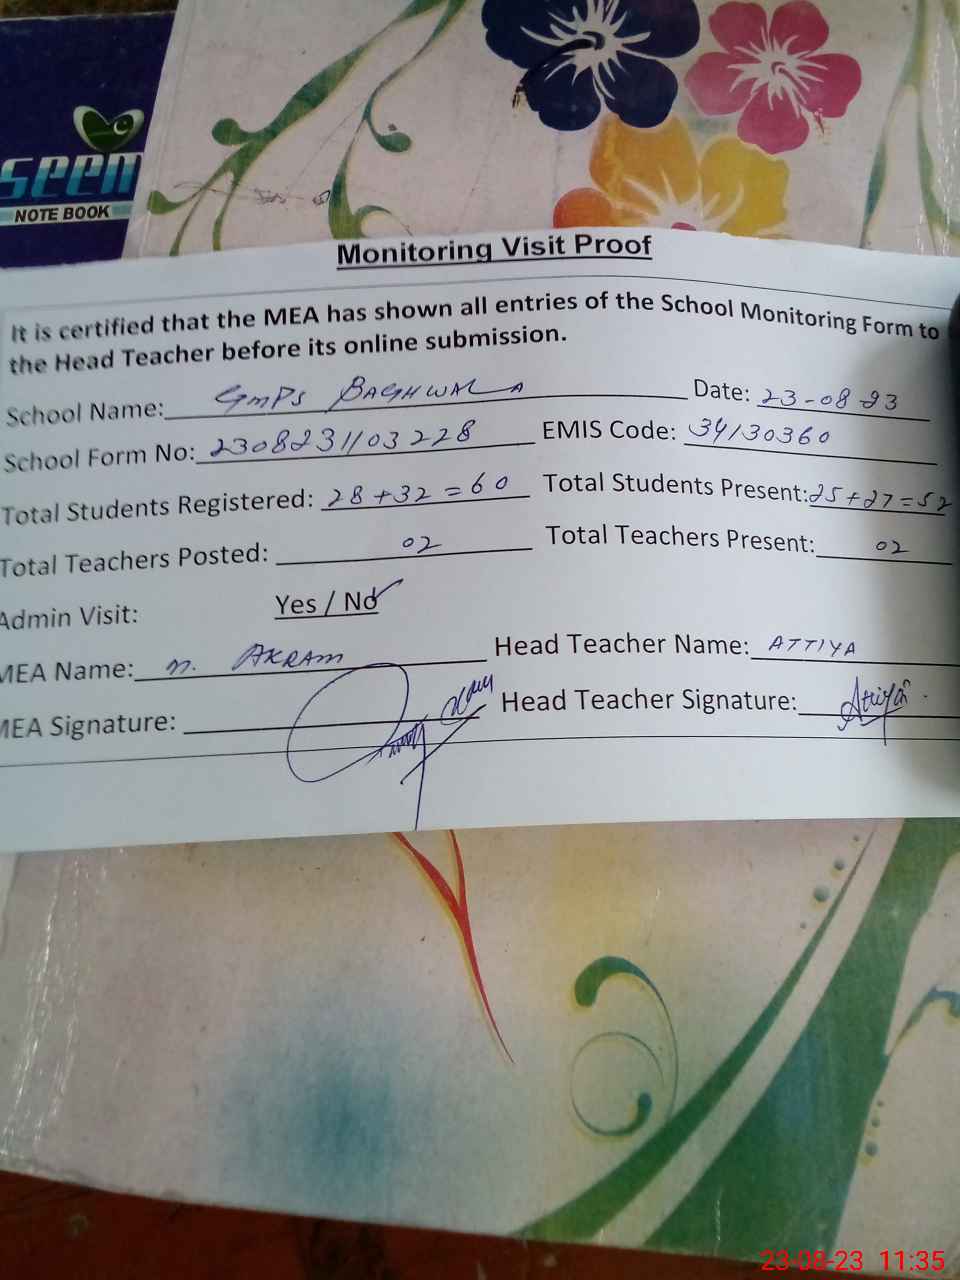 seen
NOTE BOOK
Monitoring Visit Proof
It is certified that the MEA has shown all entries of the School Monitoring Form to
the Head Teacher before its online submission.
School Name: GMPS BAGHWALA Date: 23-08-23
School Form No: 2308231103228 EMIS Code: 34130360
Total Students Registered: 28+32=60 Total Students Present: 25+27=52
Total Teachers Posted: 02 Total Teachers Present: 02
Admin Visit: Yes / No
MEA Name: M. AKRAM Head Teacher Name: ATTIYA
MEA Signature: Head Teacher Signature: Attiya
23-08-23 11:35